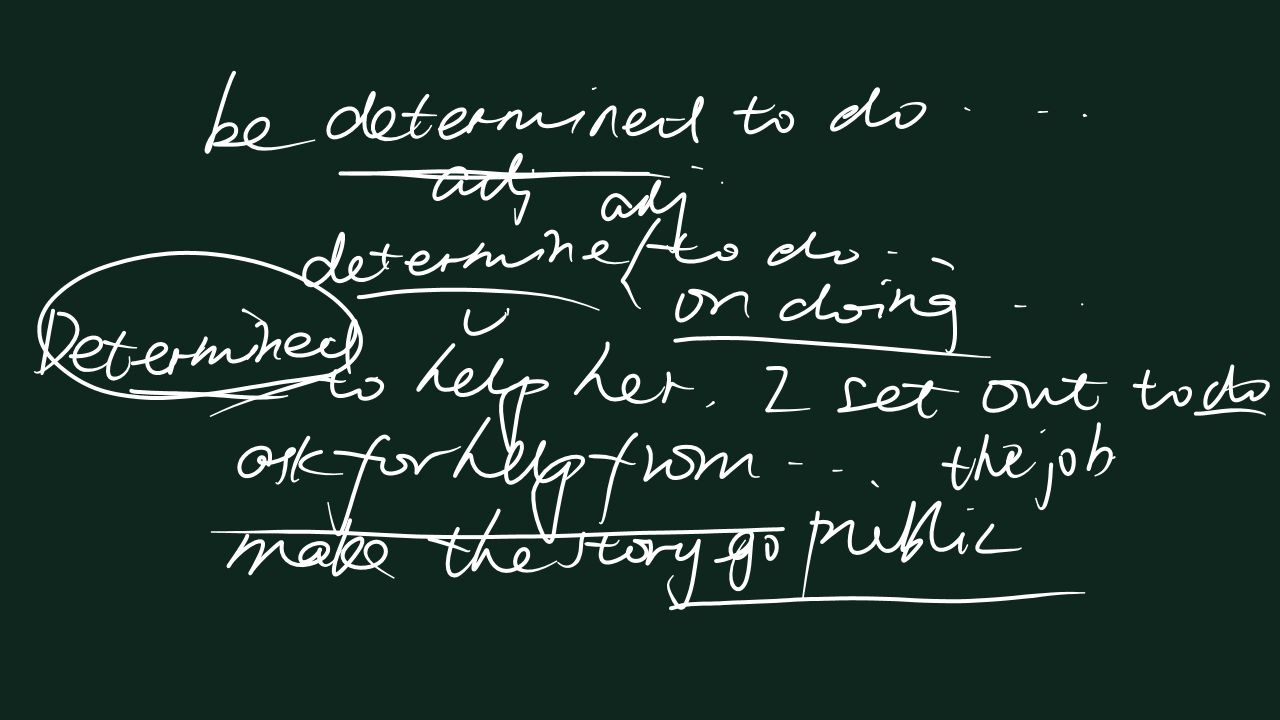 be determined to do ...
adj adj
determine to do ...
v on doing ...
Determined to help her, I set out to do
ask for help from ... the job
make the story go public